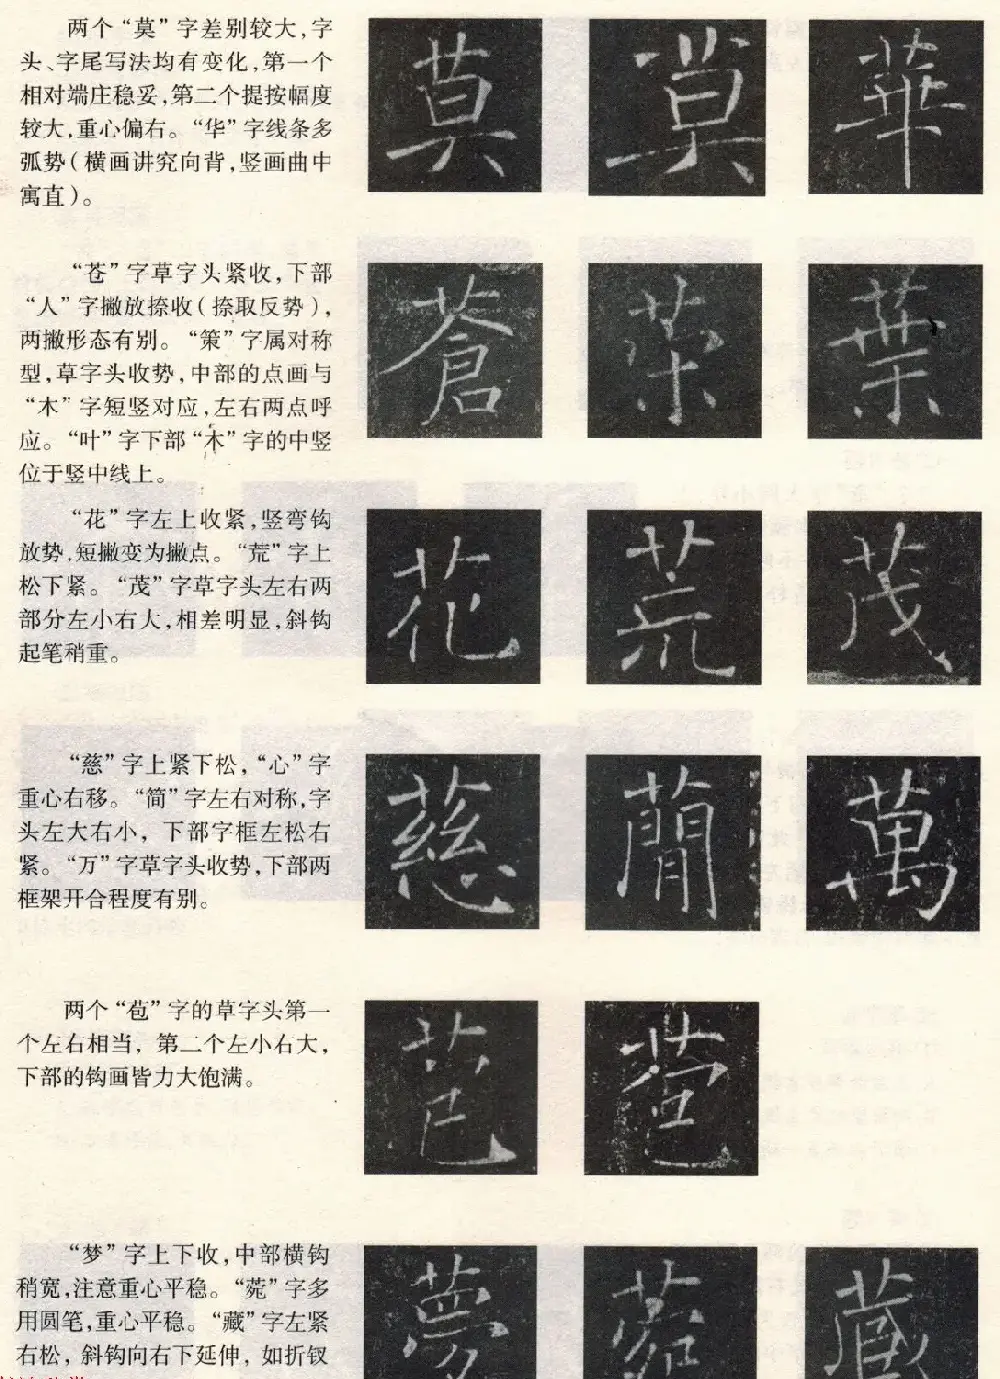 两个“莫”字差别较大,字
头、字尾写法均有变化,第一个
相对端庄稳妥,第二个提按幅度
较大,重心偏右。“华”字线条多
弧势(横画讲究向背,竖画曲中
寓直)。
莫 莫 華
“苍”字草字头紧收,下部
“人”字撇放捺收(捺取反势),
两撇形态有别。“策”字属对称
型,草字头收势,中部的点画与
“木”字短竖对应,左右两点呼
应。“叶”字下部“木”字的中竖
位于竖中线上。
蒼 葉
“花”字左上收紧,竖弯钩
放势,短撇变为撇点。“荒”字上
松下紧。“茂”字草字头左右两
部分左小右大,相差明显,斜钩
起笔稍重。
花 荒 茂
“慈”字上紧下松,“心”字
重心右移。“简”字左右对称,字
头左大右小,下部字框左松右
紧。“万”字草字头收势,下部两
框架开合程度有别。
慈 蕳 萬
两个“苞”字的草字头第一
个左右相当,第二个左小右大,
下部的钩画皆力大饱满。
苞 苞
“梦”字上下收,中部横钩
稍宽,注意重心平稳。“菀”字多
用圆笔,重心平稳。“藏”字左紧
右松,斜钩向右下延伸,如折钗
夢 藏